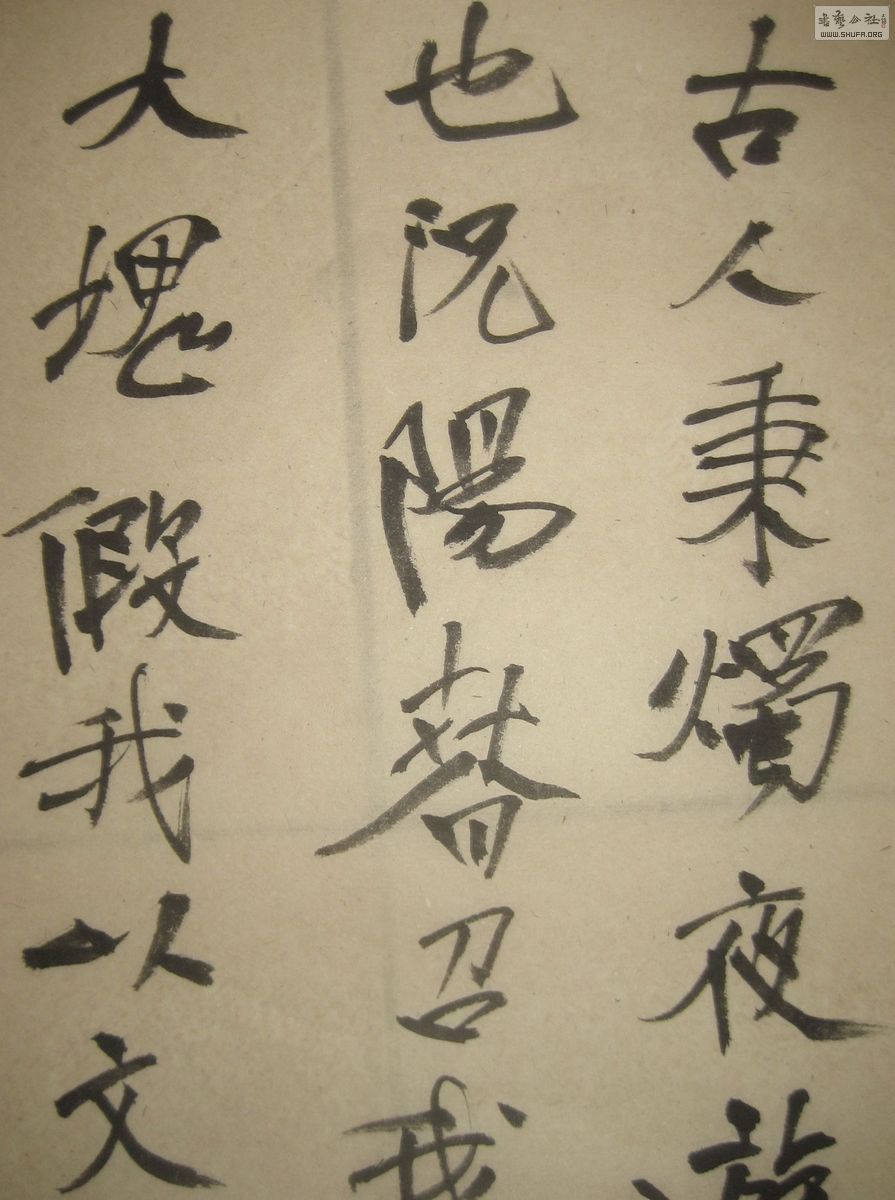 古人秉燭夜遊
也況陽春召我
大塊假我以文
WWW.SHUFA.ORG